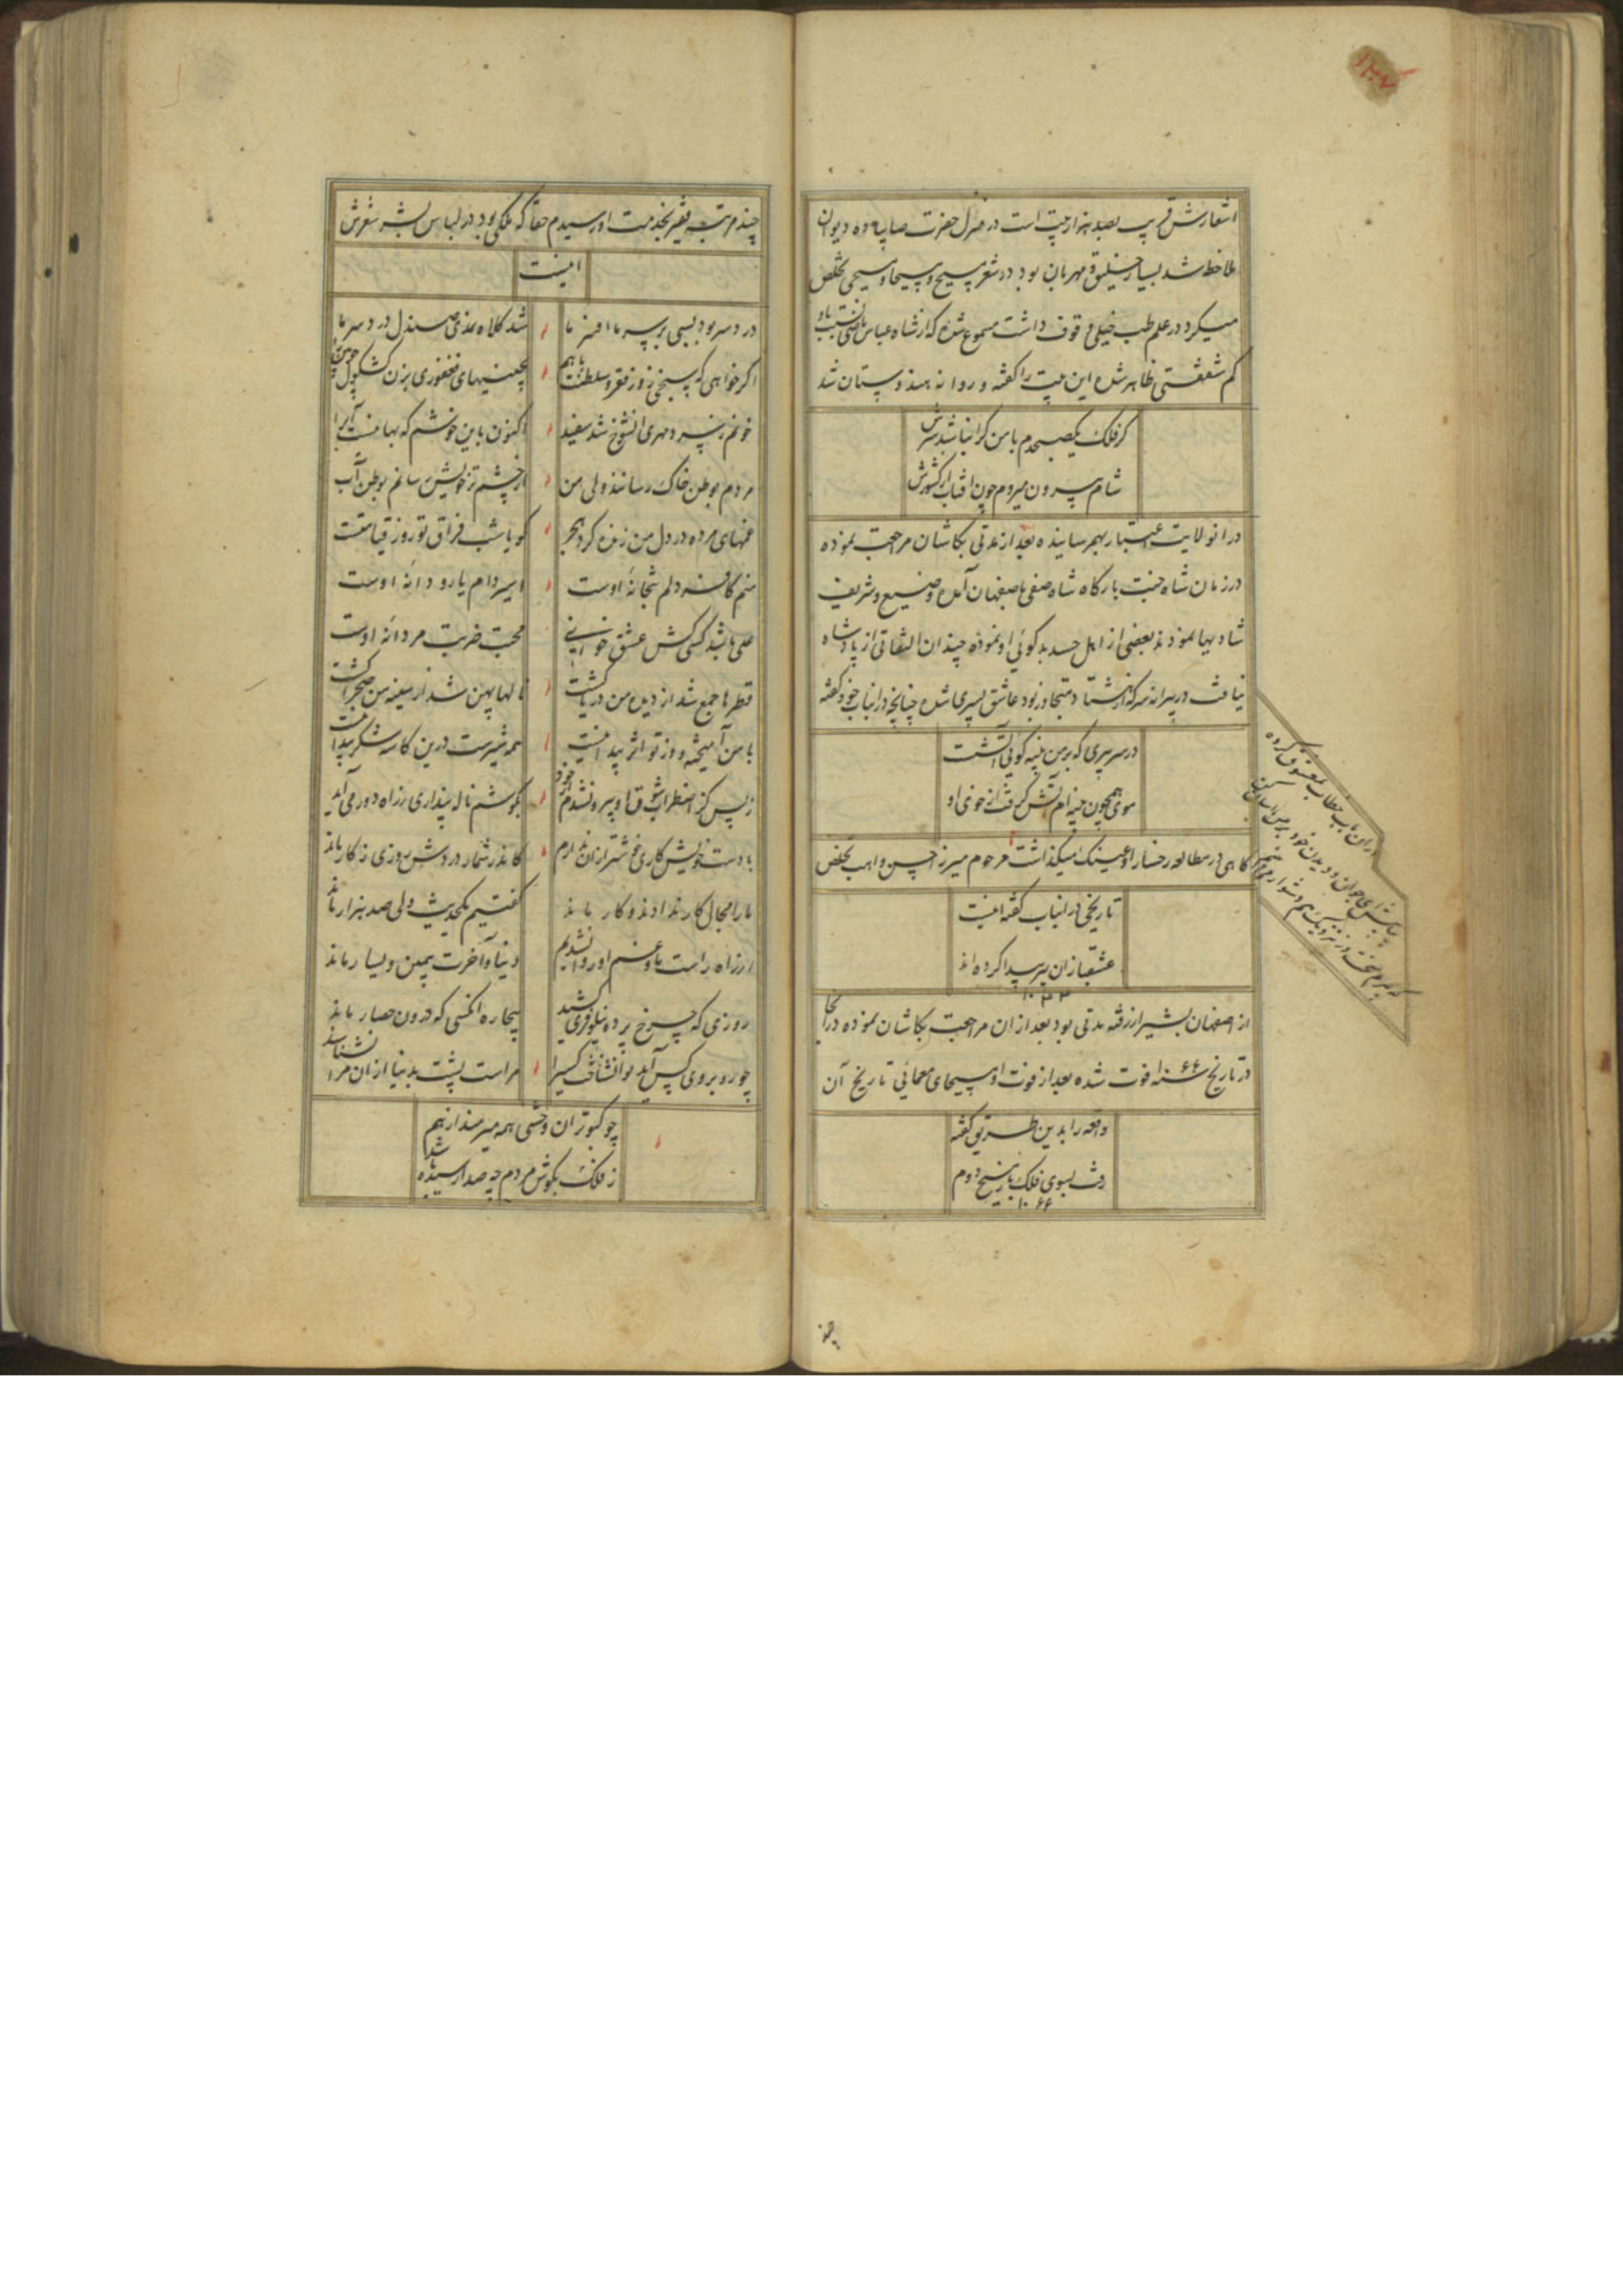 اشعارش قریب بصد هزار بیت است در منزل حضرت صایبا ده دیوان
ملاحظه شد بسیار خلیق و مهربان بود در شعر مسیح و مسیحا و مسیحی تخلص
میکرد در علم طب خیلی وقوف داشت مسموع شده که از شاه عباس ماضی نسبت باو
کم شفقتی ظاهر شده این بیت را گفته و روانه هندوستان شد
گر فلک یکصبحدم با من گران باشد سرش
شام بیرون میروم چون آفتاب از کشورش
در انولایت اعتبار بهم رسانیده بعد از مدتی بکاشان مراجعت نموده
در زمان شاه جنت بارگاه شاه صفی باصفهان آمده وضیع و شریف
شادیها نمودند بعضی از اهل حسد بدگوئی او نموده چندان التفاتی از پادشاه
نیافت در پیرانه سر که از هشتاد متجاوز بود عاشق پسری شده چنانچه در انباب خود گفته
در سر پیری که بر من پنبه گویی آتشست
موی همچون پنبه ام آتش گرفت از خوی او
گاهی در مطالعه رخسار او عینک میگذاشت مرحوم میرزا حسن واهب تخلص
تاریخی در اینباب گفته اینست
عشقبازان پیر پیدا کرده اند
از اصفهان بشیراز رفته مدتی بود بعد از ان مراجعت بکاشان نموده در انجا
در تاریخ سنه ۱۰۶۶ فوت شده بعد از فوت او مسیحای معمائی تاریخ آن
واقعه را بدین طریق گفته
رفت بسوی فلک باز مسیح دوم
۱۰۶۶
در این باب خطاب بمعشوق کرده
چند
چند مرتبه فقیر بخدمت او رسیدم حقا که ملکی بود در لباس بشر شعرش
اینست
در دسر بود بسی بر سر ما افسر ما
شد کلاه نمدی صندل درد سر ما
اگر خواهی که بسنجی زور فقر و سلطنت با هم
بچینیهای فغفوری بزن کشکول چوبین را
اکنون باین خوشم که بها نیست آبرا
مردم بوطن خاک رسانند ولی من
از چشم تر خویش رسانم بوطن آب
غمهای مرده در دل من زنده کرد هجر
گویا شب فراق تو روز قیامتست
منم کافر دلم بتخانه اوست
اسیر دام یار و دانه اوست
علی باشد کسی کش عشق خوانی
محبت ضربت مردانه اوست
قطرها جمع شد از دیده من دریا گشت
نالها پهن شد از سینه من صحرا گشت
با من آمیخته و از تو اثر پیدا نیست
همه شیرست درین کاسه شکر پیدا نیست
بگوشم ناله پنداری ز راه دور می آید
با دست خویش کاری خوشتر ازان ندارم
کاندر شمار دردش روزی ز کار ماند
ما را مجال کار ندادند و کار ماند
گفتیم یک حدیث ولی صد هزار ماند
از راه راست ما و غم او روان شدیم
دنیا و آخرت بیمین و یسار ماند
روزی که چرخ پرده نیلوفری کشید
بیچاره انکسی که درون حصار ماند
چو روبروی کس آید توان شناخت کسی را
مراست پشت بدنیا ازان مرا نشناسند
چو کبوتران وحشی همه میرمند از هم
ز فلک بگوش مردم چه صدا رسیده باشد